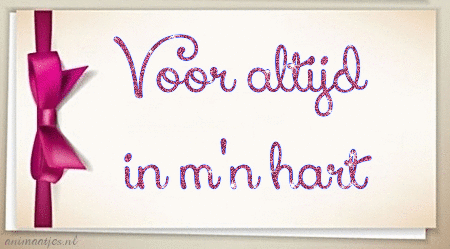 Voor altijd
in m'n hart
animaatjes.nl